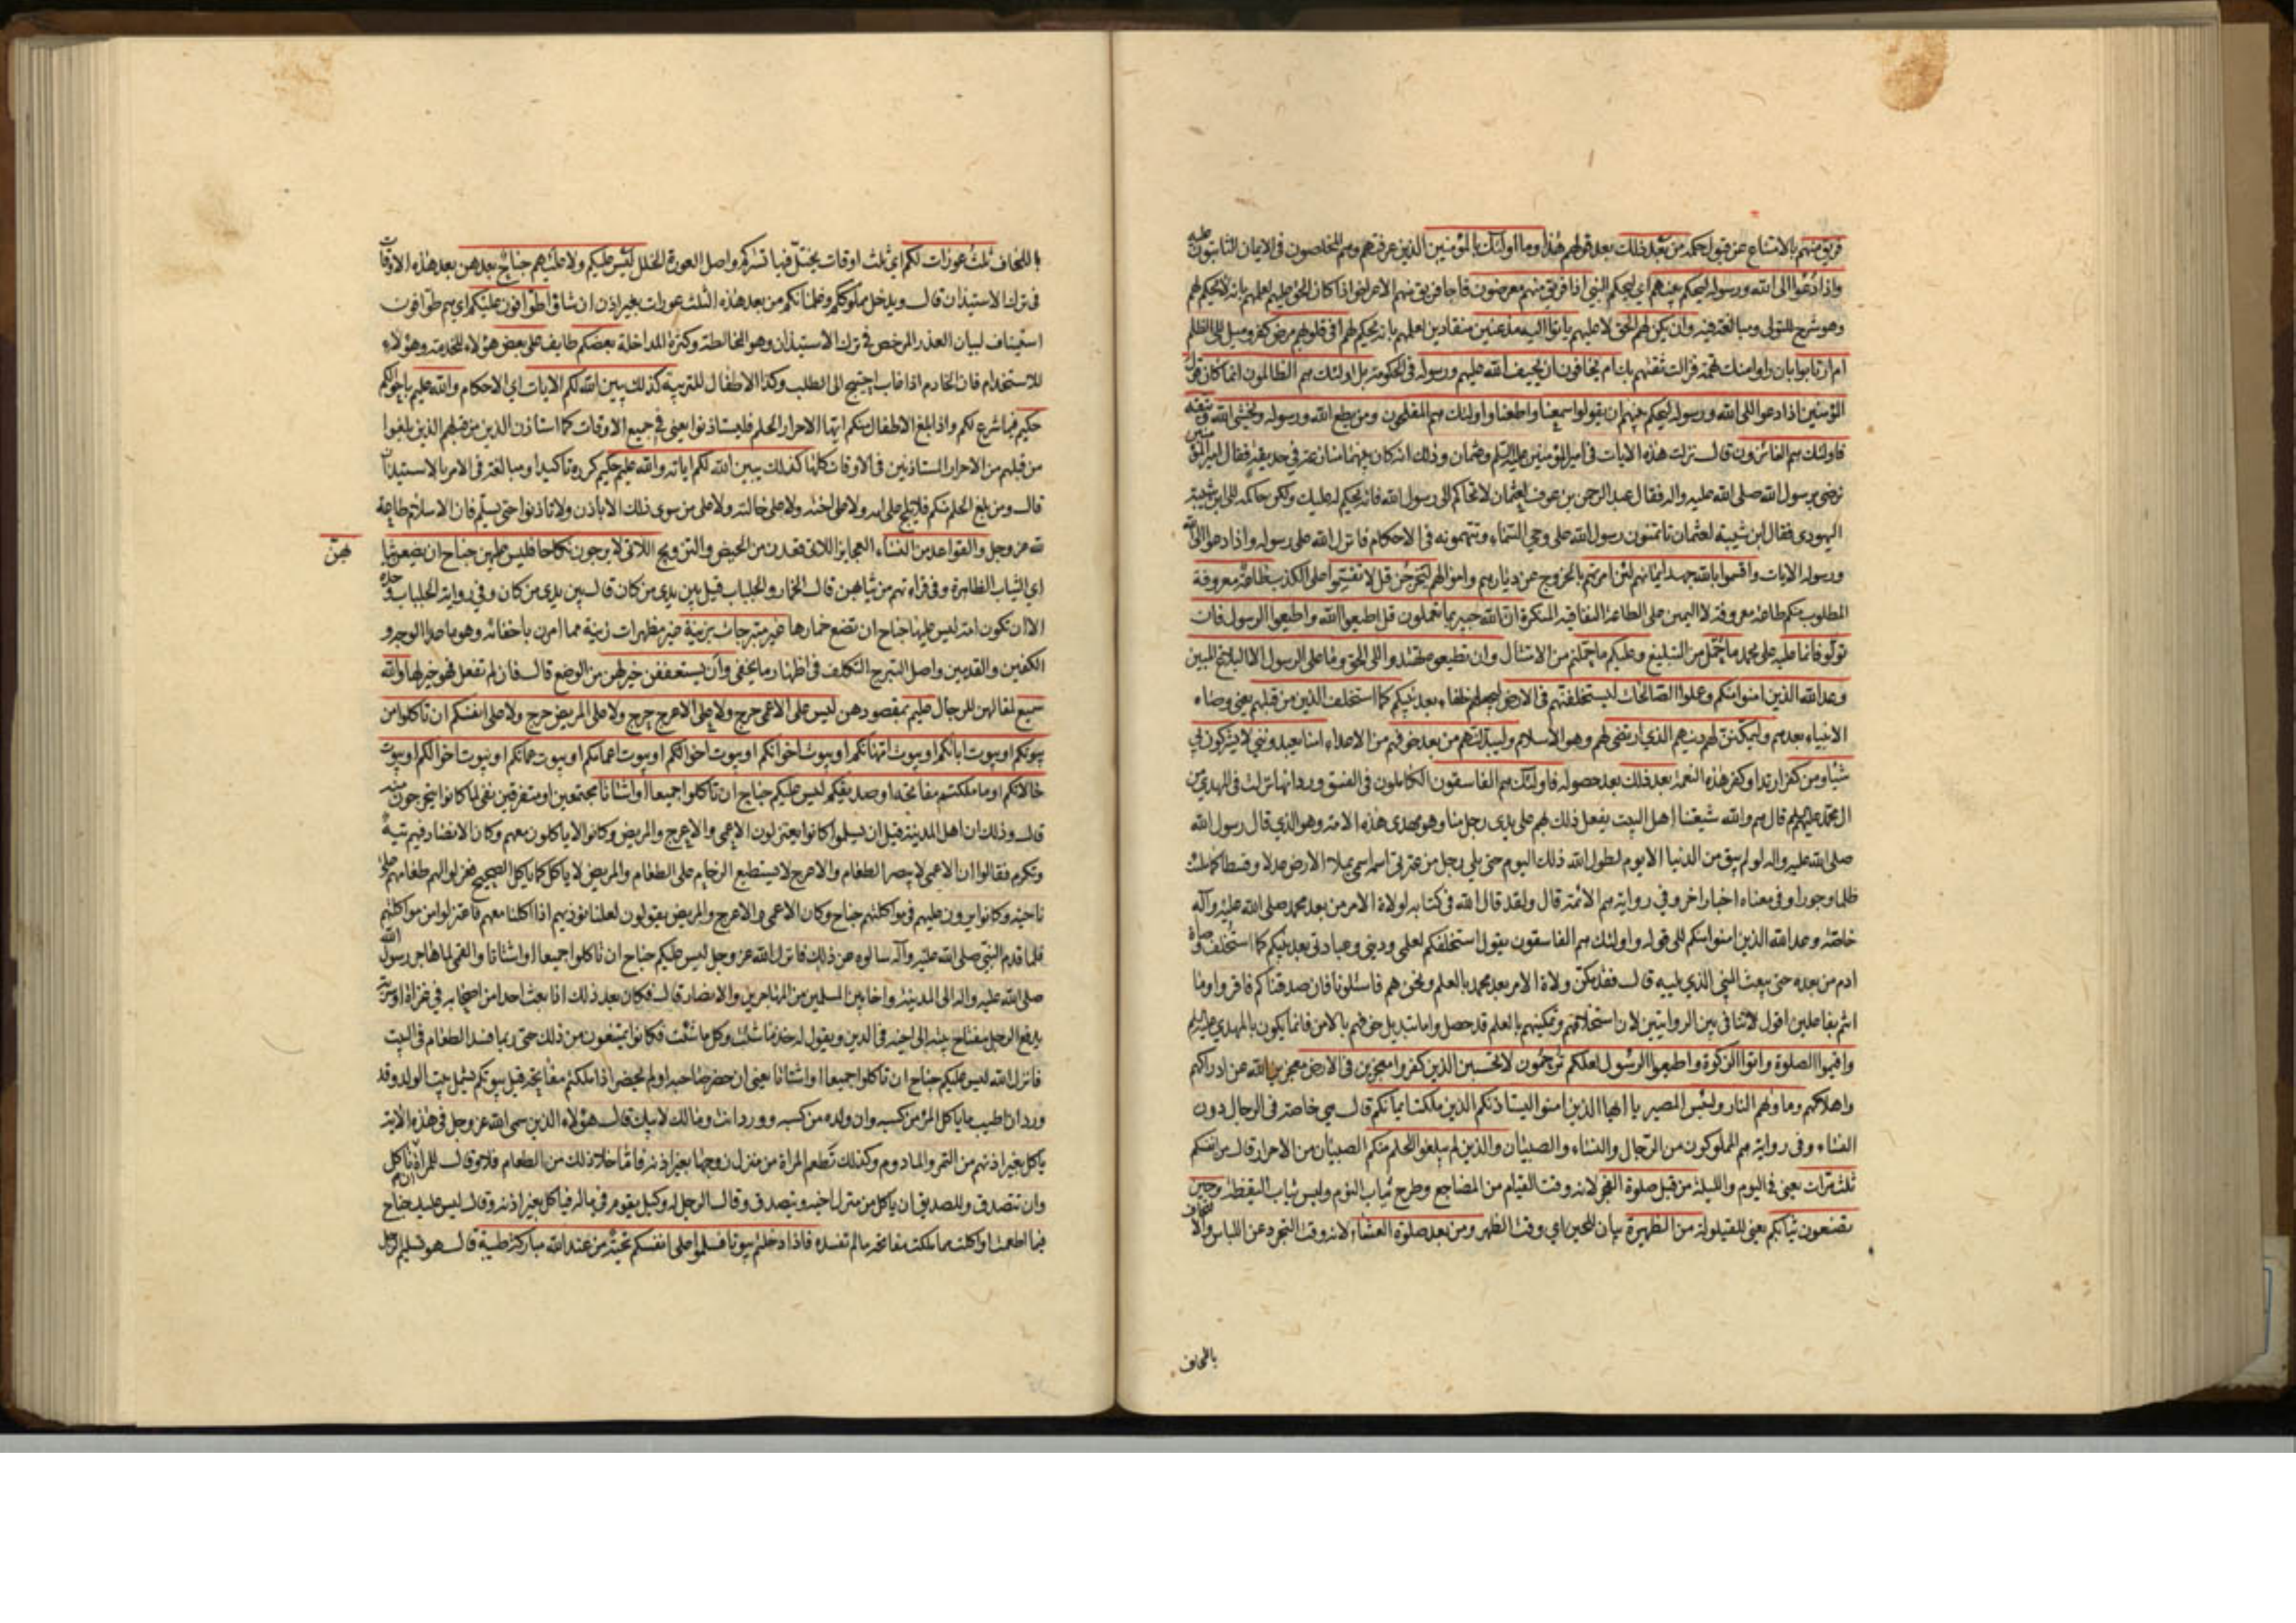 فريق منهم بالامتناع عن قبول حكمه من بعد ذلك بعد قولهم هذا وما اولئك بالمؤمنين الذين عرفتهم وهم المخلصون في الايمان الثابتون عليه
واذا دعوا الى الله ورسوله ليحكم بينهم اي ليحكم النبي اذا فريق منهم معرضون فاجا فريق منهم الاعراض اذا كان الحق عليهم لعلمهم بانه لا يحكم لهم
وهو شرح للتولي ومبالغة فيه وان يكن لهم الحق لا عليهم ياتوا اليه مذعنين منقادين لعلمهم بانه يحكم لهم افي قلوبهم مرض كفر وميل الى الظلم
ام ارتابوا بان راوا منك تهمة فزالت ثقتهم بك ام يخافون ان يحيف الله عليهم ورسوله في الحكومة بل اولئك هم الظالمون انما كان قول
المؤمنين اذا دعوا الى الله ورسوله ليحكم بينهم ان يقولوا سمعنا واطعنا واولئك هم المفلحون ومن يطع الله ورسوله ويخشى الله ويتقه
فاولئك هم الفائزون قال نزلت هذه الايات في امير المؤمنين عليه السلم وعثمان وذلك انه كان بينهما منازعة في حديقة فقال امير المؤمنين
نرضى برسول الله صلى الله عليه واله فقال عبد الرحمن بن عوف لعثمان لا تحاكمه الى رسول الله فانه يحكم له عليك ولكن حاكمه الى ابن شيبة
اليهودي فقال ابن شيبة لعثمان تاتمنون رسول الله على وحي السماء وتتهمونه في الاحكام فانزل الله على رسوله واذا دعوا الى الله
ورسوله الايات واقسموا بالله جهد ايمانهم لئن امرتهم بالخروج عن ديارهم واموالهم ليخرجن قل لا تقسموا على الكذب طاعة معروفة
المطلوب منكم طاعة معروفة لا اليمين على الطاعة النفاقية المنكرة ان الله خبير بما تعملون قل اطيعوا الله واطيعوا الرسول فان
تولوا فانما عليه على محمد ما حمل من التبليغ وعليكم ما حملتم من الامتثال وان تطيعوه تهتدوا الى الحق وما على الرسول الا البلاغ المبين
وعد الله الذين امنوا منكم وعملوا الصالحات ليستخلفنهم في الارض ليجعلهم خلفاء بعد نبيكم كما استخلف الذين من قبلهم يعني وصاه
الانبياء بعدهم وليمكنن لهم دينهم الذي ارتضى لهم وهو الاسلام وليبدلنهم من بعد خوفهم من الاعداء امنا يعبدونني لا يشركون بي
شيئا ومن كفر ارتد او كفر هذه النعمة بعد ذلك بعد حصوله فاولئك هم الفاسقون الكاملون في الفسق ورد انها نزلت في المهدي من
ال محمد عليهم السلم قال هم والله شيعتنا اهل البيت يفعل ذلك لهم على يدي رجل منا وهو مهدي هذه الامة وهو الذي قال رسول الله
صلى الله عليه واله لو لم يبق من الدنيا الا يوم لطول الله ذلك اليوم حتى يلي رجل من عترتي اسمه اسمي يملا الارض عدلا وقسطا كما ملئت
ظلما وجورا وفي معناه اخبار اخر وفي رواية هم الائمة قال ولقد قال الله في كتابه لولاة الامر من بعد محمد صلى الله عليه وآله
خاصة وعد الله الذين امنوا منكم الى قوله واولئك هم الفاسقون يقول استخلفكم لعلمي وديني وعبادتي بعد نبيكم كما استخلف وصاة
ادم من بعده حتى يبعث النبي الذي يليه قال فقد مكن ولاة الامر بعد محمد بالعلم ونحن هم فاسئلونا فان صدقناكم فاقروا وما
انتم بفاعلين اقول لا تنافي بين الروايتين لان استخلافهم وتمكينهم بالعلم قد حصل واما تبديل خوفهم بالامن فانما يكون بالمهدي عليه السلم
واقيموا الصلوة واتوا الزكوة واطيعوا الرسول لعلكم ترحمون لا تحسبن الذين كفروا معجزين في الارض معجزين الله عن ادراكهم
واهلاكهم وماويهم النار ولبئس المصير يا ايها الذين امنوا ليستاذنكم الذين ملكت ايمانكم قال هي خاصة في الرجال دون
النساء وفي رواية هم المملوكون من الرجال والنساء والصبيان والذين لم يبلغوا الحلم منكم الصبيان من الاحرار قال من انفسكم
ثلث مرات يعني في اليوم والليلة من قبل صلوة الفجر لانه وقت القيام من المضاجع وطرح ثياب النوم ولبس ثياب اليقظة وحين
تضعون ثيابكم يعني للقيلولة من الظهيرة بيان للحين اي وقت الظهر ومن بعد صلوة العشاء لانه وقت التجرد عن اللباس والالتحاف
باللحاف
باللحاف ثلث عورات لكم اي ثلث اوقات يختل فيها تستركم واصل العورة الخلل ليس عليكم ولا عليهم جناح بعدهن بعد هذه الاوقات
في ترك الاستيذان قال ويدخل مملوككم وغلمانكم من بعد هذه الثلث عورات بغير اذن ان شاؤا طوافون عليكم اي هم طوافون
استيناف لبيان العذر المرخص في ترك الاستيذان وهو المخالطة وكثرة المداخلة بعضكم طايف على بعض هؤلاء للخدمة وهؤلاء
للاستخدام فان الخادم اذا غاب احتيج الى الطلب وكذا الاطفال للتربية كذلك يبين الله لكم الايات اي الاحكام والله عليم باحوالكم
حكيم فيما شرع لكم واذا بلغ الاطفال منكم ايها الاحرار الحلم فليستاذنوا يعني في جميع الاوقات كما استاذن الذين من قبلهم الذين بلغوا
من قبلهم من الاحرار المستاذنين في الاوقات كلها كذلك يبين الله لكم اياته والله عليم حكيم كرره تاكيدا ومبالغة في الامر بالاستيذان
قال ومن بلغ الحلم منكم فلا يلج على امه ولا على اخته ولا على خالته ولا على من سوى ذلك الا باذن ولا تاذنوا حتى يسلم فان الاسلام طاعة
لله عز وجل والقواعد من النساء العجايز اللاتي قعدن من الحيض والتزويج اللاتي لا يرجون نكاحا فليس عليهن جناح ان يضعن ثيا
بهن
اي الثياب الظاهرة وفي قراءتهم من ثيابهن قال الخمار والجلباب قيل بين يدي من كان قال بين يدي من كان وفي رواية الجلباب وحده
الا ان تكون امة ليس عليها جناح ان تضع خمارها غير متبرجات بزينة غير مظهرات زينة مما امرن باخفائه وهو ما عدا الوجه و
الكفين والقدمين واصل التبرج التكلف في اظهار ما يخفى وان يستعففن خير لهن من الوضع قال فان لم تفعل فهو خير لها والله
سميع لمقالهن للرجال عليم بمقصودهن ليس على الاعمى حرج ولا على الاعرج حرج ولا على المريض حرج ولا على انفسكم ان تاكلوا من
بيوتكم او بيوت ابائكم او بيوت امهاتكم او بيوت اخوانكم او بيوت اخواتكم او بيوت اعمامكم او بيوت عماتكم او بيوت اخوالكم او بيوت
خالاتكم او ما ملكتم مفاتحه او صديقكم ليس عليكم جناح ان تاكلوا جميعا او اشتاتا مجتمعين او متفرقين نفي لما كانوا يتحرجون منه
قال وذلك ان اهل المدينة قبل ان يسلموا كانوا يعتزلون الاعمى والاعرج والمريض وكانوا لا ياكلون معهم وكان الانصار فيهم تيه
وتكرم فقالوا ان الاعمى لا يبصر الطعام والاعرج لا يستطيع الزحام على الطعام والمريض لا ياكل كما ياكل الصحيح فعزلوا لهم طعامهم على
ناحية وكانوا يرون عليهم في مواكلتهم جناح وكان الاعمى والاعرج والمريض يقولون لعلنا نوذيهم اذا اكلنا معهم فاعتزلوا من مواكلتهم
فلما قدم النبي صلى الله عليه وآله سالوه عن ذلك فانزل الله عز وجل ليس عليكم جناح ان تاكلوا جميعا او اشتاتا والقمي لما هاجر رسول الله
صلى الله عليه واله الى المدينة واخا بين المسلمين من المهاجرين والانصار قال فكان بعد ذلك اذا بعث احدا من اصحابه في غزاة او سرية
يدفع الرجل مفتاح بيته الى اخيه في الدين ويقول له خذ ما شئت وكل ما شئت فكانوا يمتنعون من ذلك حتى ربما فسد الطعام في البيت
فانزل الله ليس عليكم جناح ان تاكلوا جميعا او اشتاتا يعني ان حضر صاحبه او لم يحضر اذا ملكتم مفاتحه قيل بيوتكم يشمل بيت الولد وقد
ورد ان اطيب ما ياكل المرء من كسبه وان ولده من كسبه وورد انت ومالك لابيك قال هؤلاء الذين سمى الله عز وجل في هذه الاية
ياكل بغير اذنهم من التمر والمادوم وكذلك تطعم المراة من منزل زوجها بغير اذنه فاما ما خلا ذلك من الطعام فلا وقال للمراة ان تاكل
وان تتصدق وللصديق ان ياكل من منزل اخيه ويتصدق وقال الرجل له وكيل يقوم في ماله فياكل بغير اذنه وقال ليس عليك جناح
فيما اطعمت او اكلت مما ملكت مفاتحه ما لم تفسده فاذا دخلتم بيوتا فسلموا على انفسكم تحية من عند الله مباركة طيبة قال هو تسليم الرجل